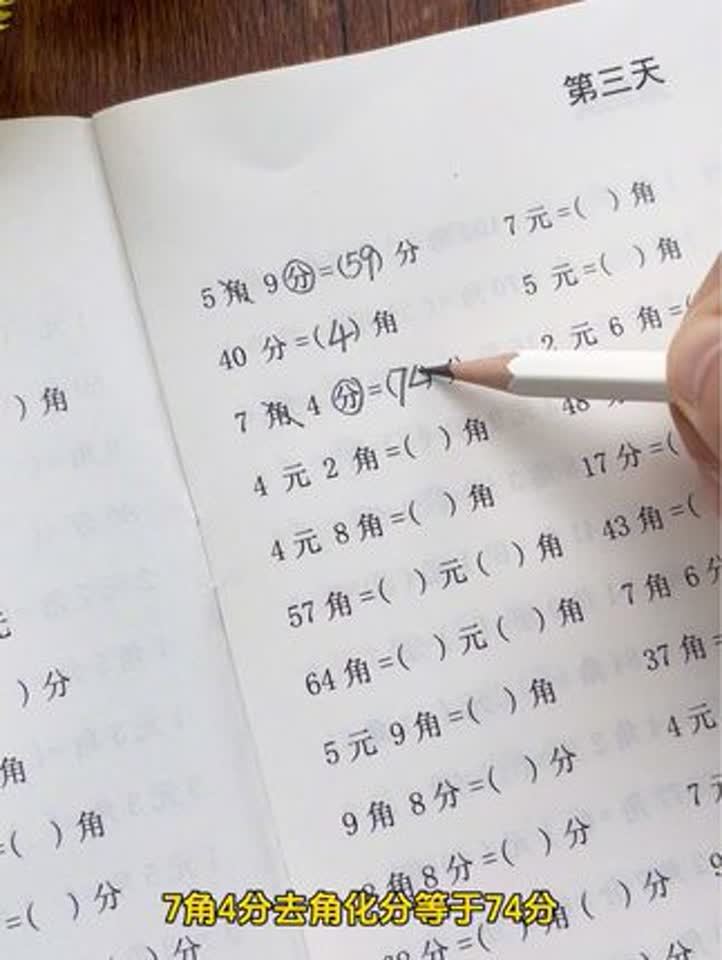 第三天
5角9分=(59)分 7元=( )角
40分=(4)角 5元=( )角
7角4分=(74 2元6角=(
4元2角=( )角 48
4元8角=( )角 17分=(
57角=( )元( )角 43角=(
64角=( )元( )角 7角6分
5元9角=( )角 37角=
9角8分=( )分 4元
角8分=( )分 7元
角( )分 9
)角
元
)分
角
=( )角
=( )分
)分
7角4分去角化分等于74分